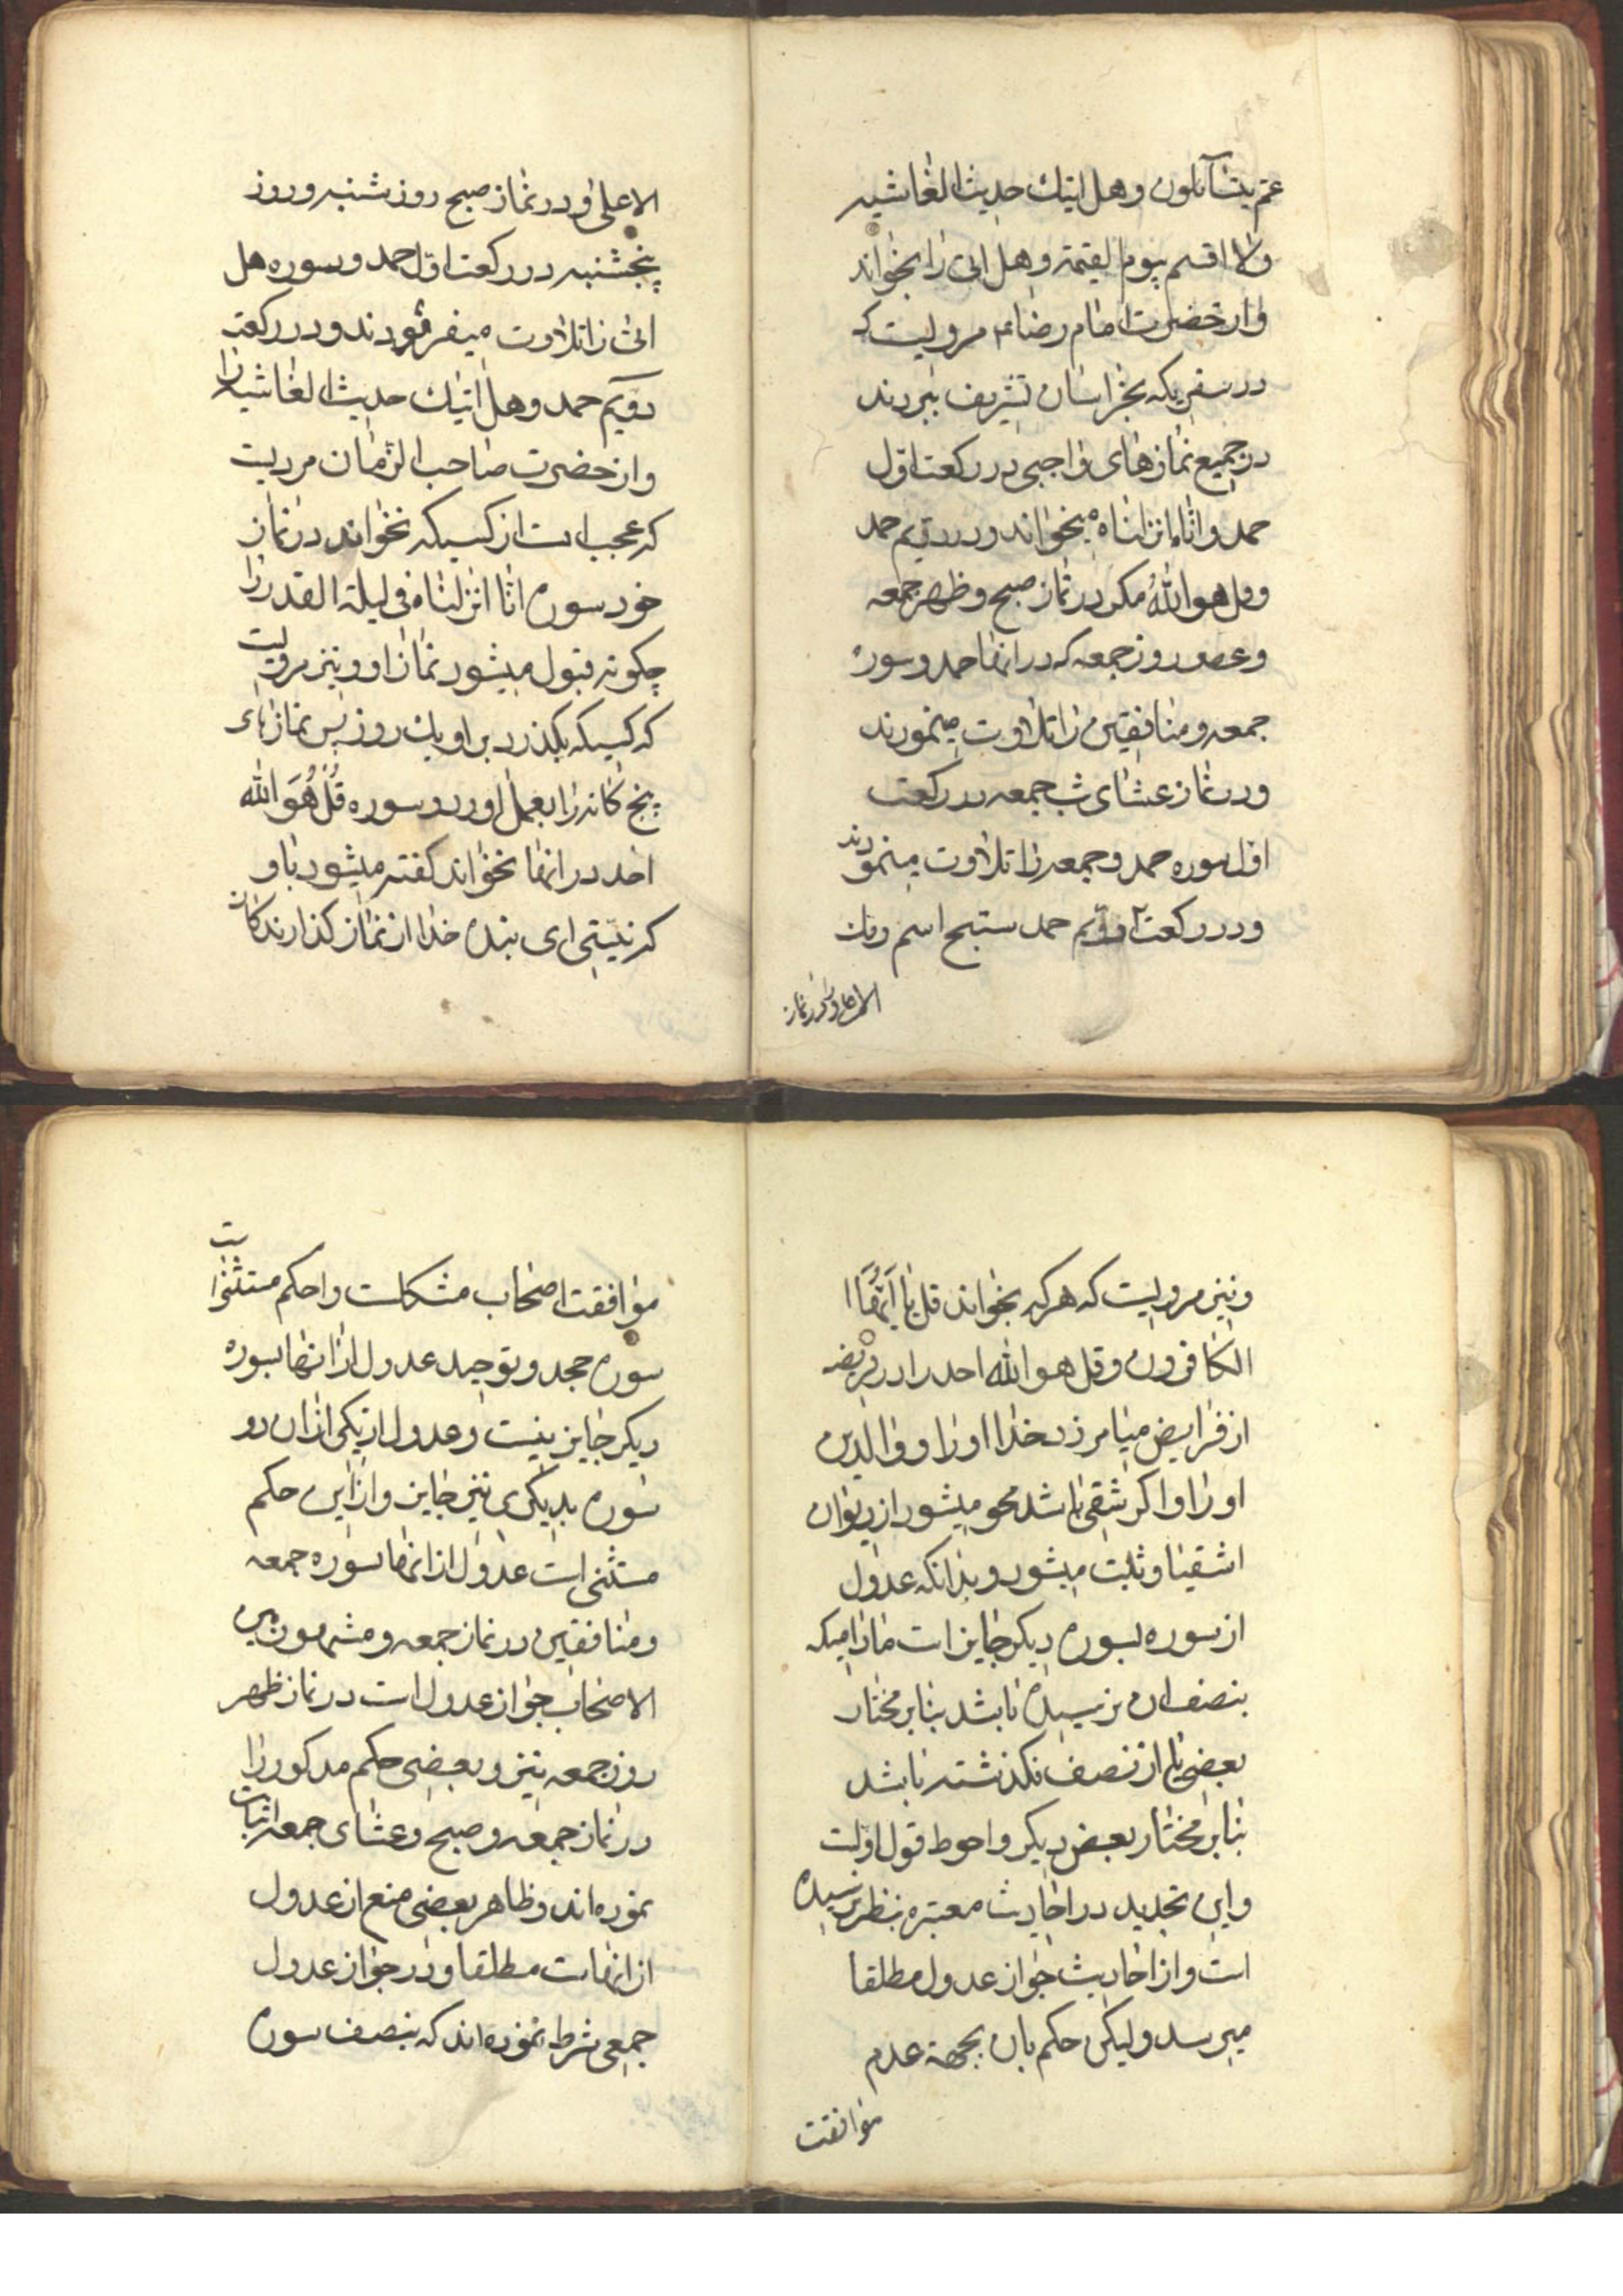 عم یتسآءلون و هل اتیک حدیث الغاشیه
و لا اقسم بیوم القیمة و هل اتی را بخواند
و از حضرت امام رضا ع مرویست که
در سفریکه بخراسان تشریف ببردند
در جمیع نمازهای واجبی در رکعت اوّل
حمد و انّا انزلناه بخواند و در دویم حمد
و قل هو اللّه مکر در نماز صبح و ظهر جمعه
و عصر روز جمعه که در انها حمد و سوره
جمعه و منافقین را تلاوت مینمودند
و در نماز عشای شب جمعه در رکعت
اول سوره حمد و جمعه را تلاوت مینمودند
و در رکعت دویم حمد سبّح اسم ربک
الاعلی و در نماز
الاعلی و در نماز صبح روز شنبه و روز
پنجشنبه در رکعت اوّل حمد و سوره هل
اتی را تلاوت میفرمودند و در رکعت
دویّم حمد و هل اتیک حدیث الغاشیه را
و از حضرت صاحب الزّمان مرویست
که عجب است از کسیکه نخواند در نماز
خود سوره انّا انزلناه فی لیلة القدر را
چکونه قبول میشود نماز او و نیز مرویست
که کسیکه بکذرد بر او یک روز پس نمازهای
پنج کانه را بعمل اورد و سوره قُل هُوَ اللّه
احد در انها نخواند کفته میشود باو
که نیستی ای بنده خدا از نماز کذارندکان
و نیز مرویست که هر که بخواند قل یا اَیُّهَا ا
الکافرون و قل هو اللّه احد را در فریضه
از فرایض میامرزد خدا او را و والدین
او را و اکر شقی باشد محو میشود از دیوان
اشقیا و ثبت میشود و بدانکه عدول
از سوره بسوره دیکر جایز است مادامیکه
بنصف ان نرسیده باشد بنابر مختار
بعضی یا از نصف نکذشته باشد
بنابر مختار بعض دیکر و احوط قول اوّلست
و این تحدید در احادیث معتبره بنظر نرسیده
است و از احادیث جواز عدول مطلقا
میرسد و لیکن حکم بان بجهة عدم
موافقت
موافقت اصحاب مشکلست و احکم مستثنیات
سوره جحد و توحید عدول از انها بسوره
دیکر جایز نیست و عدول از یکی از ان دو
سوره بدیکری نیز جایز و از این حکم
مستثنی است عدول از انها بسوره جمعه
و منافقین در نماز جمعه و مشهور بین
الاصحاب جواز عدول است در نماز ظهر
روز جمعه نیز و بعضی حکم مذکور را
در نماز جمعه و صبح و عشای جمعه اثبات
نموده اند و ظاهر بعضی منع از عدول
از انهاست مطلقا و در جواز عدول
جمعی شرط نموده اند که بنصف سوره